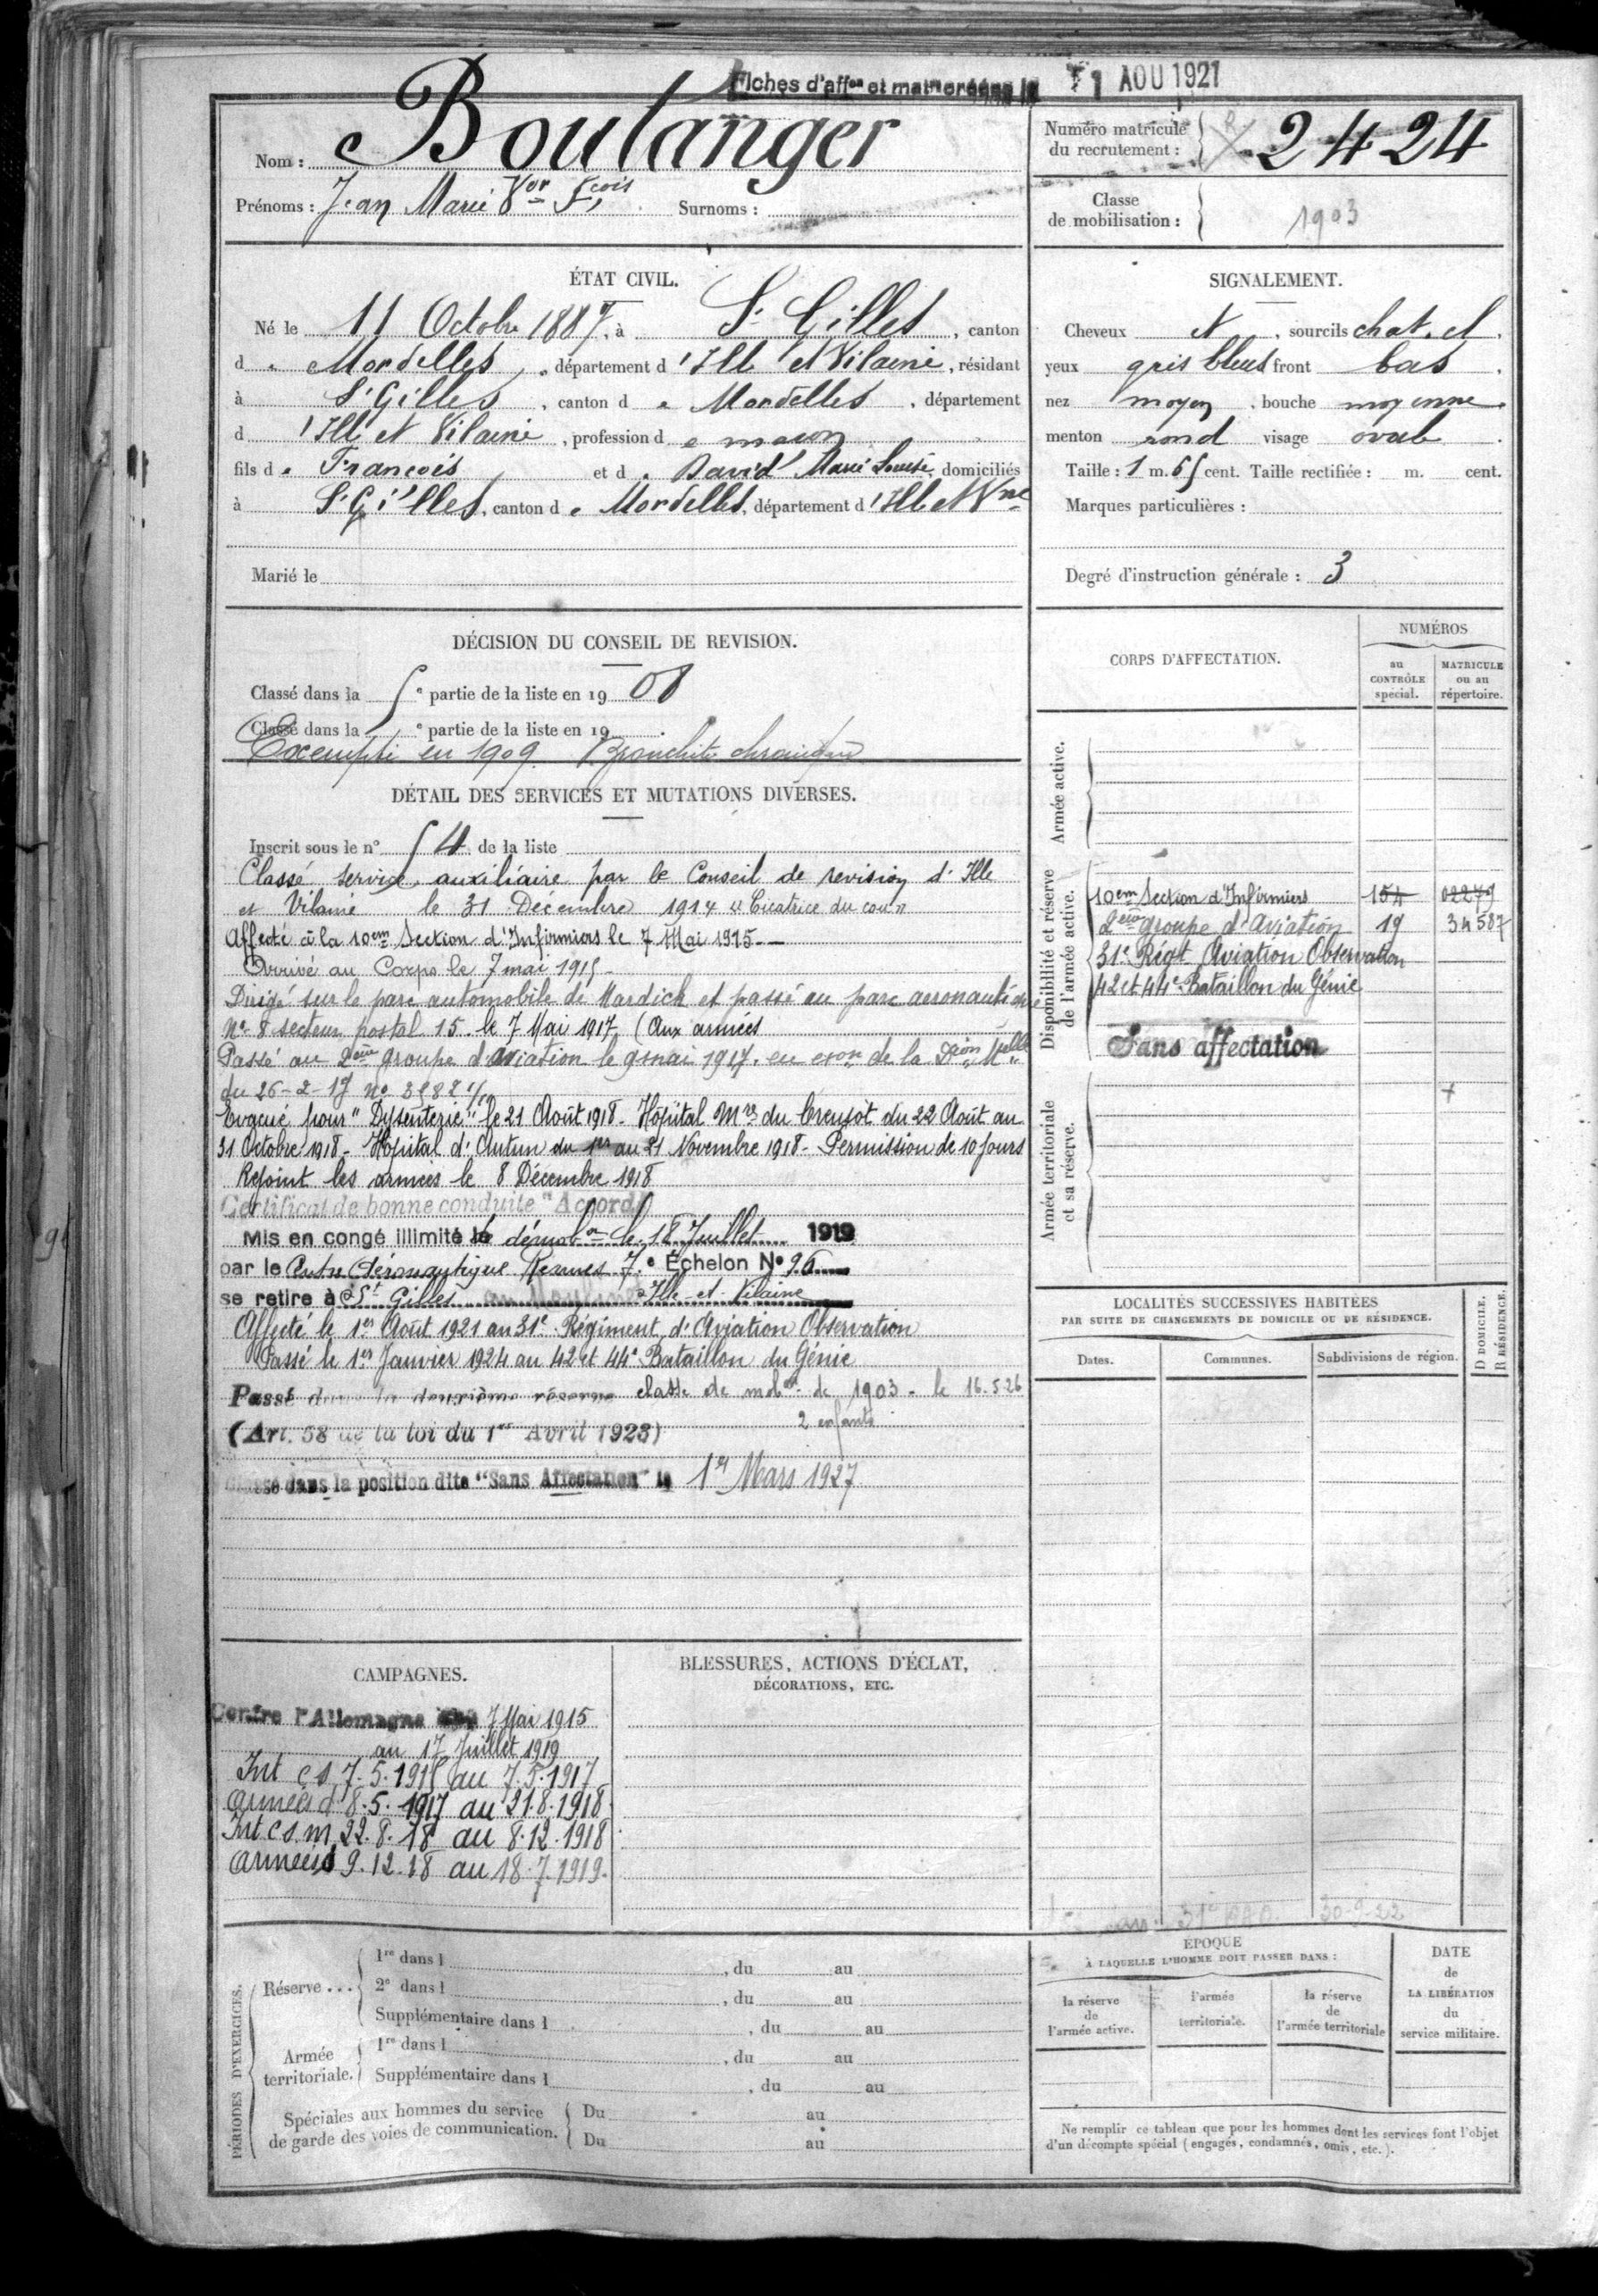 Fiches d'aff^on et mat^le créées le 1 AOU 1921
Nom : Boulanger
Prénoms : Jean Marie V^or F^çois Surnoms :
Numéro matricule du recrutement : 2424
Classe de mobilisation : 1903
ÉTAT CIVIL.
Né le 11 Octobre 1887, à S^t Gilles, canton
d e Mordelles, département d 'Ille et Vilaine, résidant
à S^t Gilles, canton d e Mordelles, département
d 'Ille et Vilaine, profession d e maçon
fils d e François et d e David Marie Louise, domiciliés
à S^t Gilles, canton d e Mordelles, département d 'Ille et V^ne
Marié le
SIGNALEMENT.
Cheveux et, sourcils chat. cl.
yeux gris bleus front bas,
nez moyen, bouche moyenne,
menton rond visage ovale.
Taille : 1 m. 65 cent. Taille rectifiée : m. cent.
Marques particulières :
Degré d'instruction générale : 3
DÉCISION DU CONSEIL DE REVISION.
Classé dans la 5^e partie de la liste en 1908
Classé dans la ^e partie de la liste en 19 .
Exempté en 1909. Bronchite chronique
DÉTAIL DES SERVICES ET MUTATIONS DIVERSES.
Inscrit sous le n° 54 de la liste
Classé service auxiliaire par le Conseil de revision d'Ille
et Vilaine le 31 Décembre 1914 "Cicatrice du cou"
Affecté à la 10^em Section d'Infirmiers le 7 Mai 1915
Arrivé au Corps le 7 mai 1915
Dirigé sur le parc automobile de Mardick et passé au parc aeronautique
N° 8 secteur postal 15 le 7 Mai 1917 (Aux armées
Passé au 2^ème groupe d'aviation le 9 mai 1917. en e^xon de la D^ion M^elle
du 26-2-17 n° 3587 1/12
Evacué pour "Dysenterie" le 21 Août 1918 - Hôpital M^re du Creusot du 22 Août au
31 Octobre 1918 - Hôpital d'Autun du 1^er au 21 Novembre 1918 - Permission de 10 jours
Rejoint les armées le 8 Décembre 1918
Certificat de bonne conduite "Accordé"
Mis en congé illimité de démob^on le 18 Juillet 1919
par le Centre Aéronautique Rennes 7^e Échelon N° 96
se retire à S^t Gilles Ille-et-Vilaine
Affecté le 1^er Août 1921 au 31^e Régiment d'Aviation Observation
Passé le 1^er Janvier 1924 au 42 et 44^e Bataillon du Génie
Passé dans la deuxième réserve classe de mob^on de 1903 - le 16.5.26
(Art. 58 de la loi du 1^er Avril 1923) 2 enfants
Classé dans la position dite "Sans Affectation" le 1^er Mars 1927
CORPS D'AFFECTATION.
NUMÉROS
au CONTRÔLE spécial.
MATRICULE ou au répertoire.
Armée active.
Disponibilité et réserve de l'armée active.
10^em Section d'Infirmiers 154 02279
2^ème groupe d'Aviation 19 34587
31^e Rég^t Aviation Observation
42 et 44^e Bataillon du Génie
Sans affectation
Armée territoriale et sa réserve.
LOCALITÉS SUCCESSIVES HABITÉES
PAR SUITE DE CHANGEMENTS DE DOMICILE OU DE RÉSIDENCE.
Dates. Communes. Subdivisions de région. D DOMICILE. R RÉSIDENCE.
30-9-22
CAMPAGNES.
Contre l'Allemagne 7 Mai 1915
au 17 Juillet 1919
Int c s 7.5.1915 au 7.5.1917
armées d 8.5.1917 au 21.8.1918
Int c s m 22.8.18 au 8.12.1918
armées 9.12.18 au 18.7.1919.
BLESSURES, ACTIONS D'ÉCLAT,
DÉCORATIONS, ETC.
PÉRIODES D'EXERCICES.
Réserve ...
1^re dans l , du au
2^e dans l , du au
Supplémentaire dans l , du au
Armée territoriale.
1^re dans l , du au
Supplémentaire dans l , du au
Spéciales aux hommes du service
de garde des voies de communication.
Du au
Du au
ÉPOQUE
À LAQUELLE L'HOMME DOIT PASSER DANS :
la réserve de l'armée active.
l'armée territoriale.
la réserve de l'armée territoriale
DATE de LA LIBÉRATION du service militaire.
Ne remplir ce tableau que pour les hommes dont les services font l'objet
d'un décompte spécial (engagés, condamnés, omis, etc.).